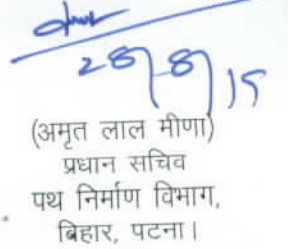 28/8/15
(अमृत लाल मीणा)
प्रधान सचिव
पथ निर्माण विभाग,
बिहार, पटना।